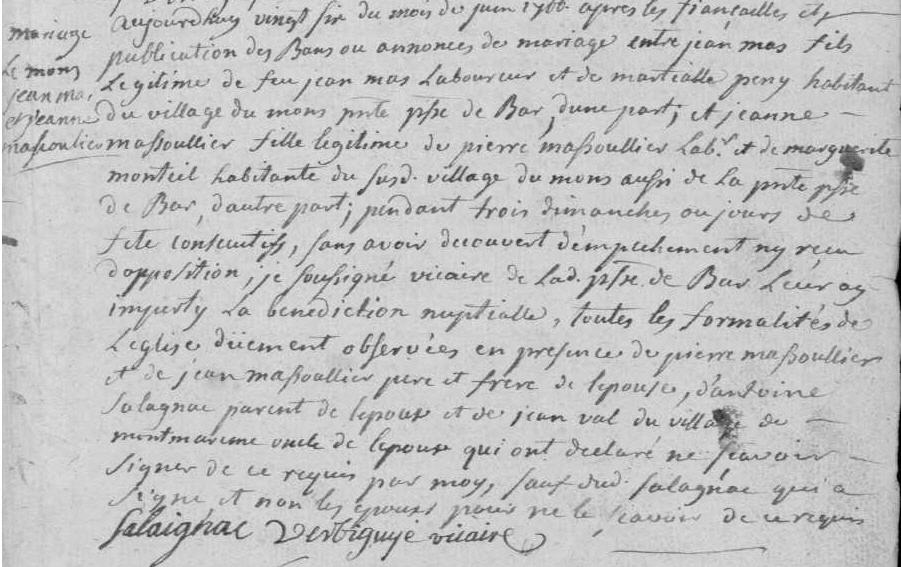 mariage
Le mons
jean mas
et jeanne
massoulier
aujourdhuy vingt six du mois de juin apres les fiançailles et
publication des Bans ou annonces de mariage entre jean mas fils
Legitime de feu jean mas Laboureur et de martialle peny habitant
Du village du mons pnte psse de Bar, dune part; et jeanne
massoullier fille legitime de pierre massoullier Labr. et de marguerite
monteil habitante du susd. village du mons aussi de La pnte psse
de Bar, dautre part; pendant trois dimanches ou jours de
fete consecutifs, sans avoir decouvert dempechement ny recu
dopposition; je soussigné vicaire de Lad. psse. de Bar Leur ay
imparty La benediction nuptialle, toutes les formalités de
Leglise düement observées en presence de pierre massoullier
et de jean massoullier pere et frere de lepouse, d'antoine
Salagnac parent de lepoux et de jean val du village de
montmareme oncle de lepoux qui ont declaré ne scavoir
Signer de ce requis par moy, sauf dud. Salagnac qui a
Signé et non les epoux pour ne le scavoir de ce requis
Salaignac Verbiguye vicaire